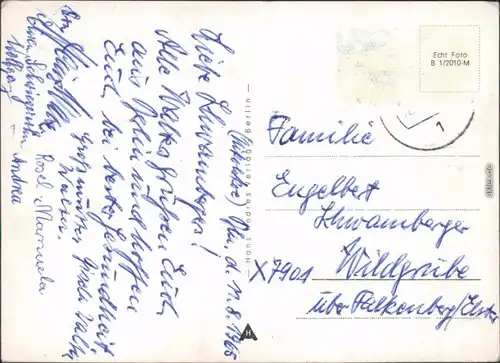 Echt Foto
B 1/2010-M
1
Familie
Engelbert
Schwamberger
X7901
Wildgrube
über Falkenberg/Elster
— Hans Andres Verlag, Berlin —
d. 11.8.1965
Liebe Schwambergers!
Alle Walters grüßen Euch
aus und hoffen
Euch bei bester Gesundheit
Großmutter Gisela Walter
Rosel Manuela
Wolfgang — Andrea
H